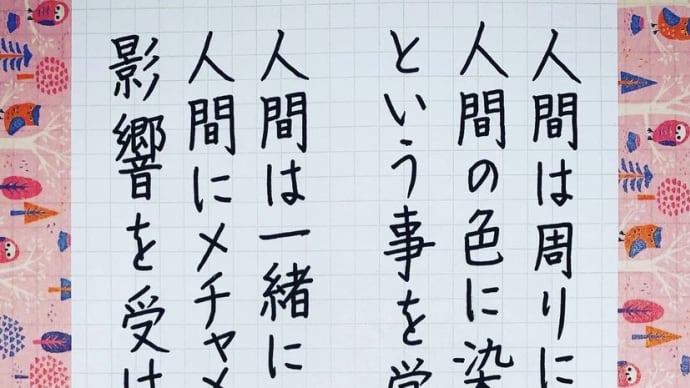 人間は周りに
人間の色に染
という事を
人間は一緒に
人間にメチャメ
影響を受け